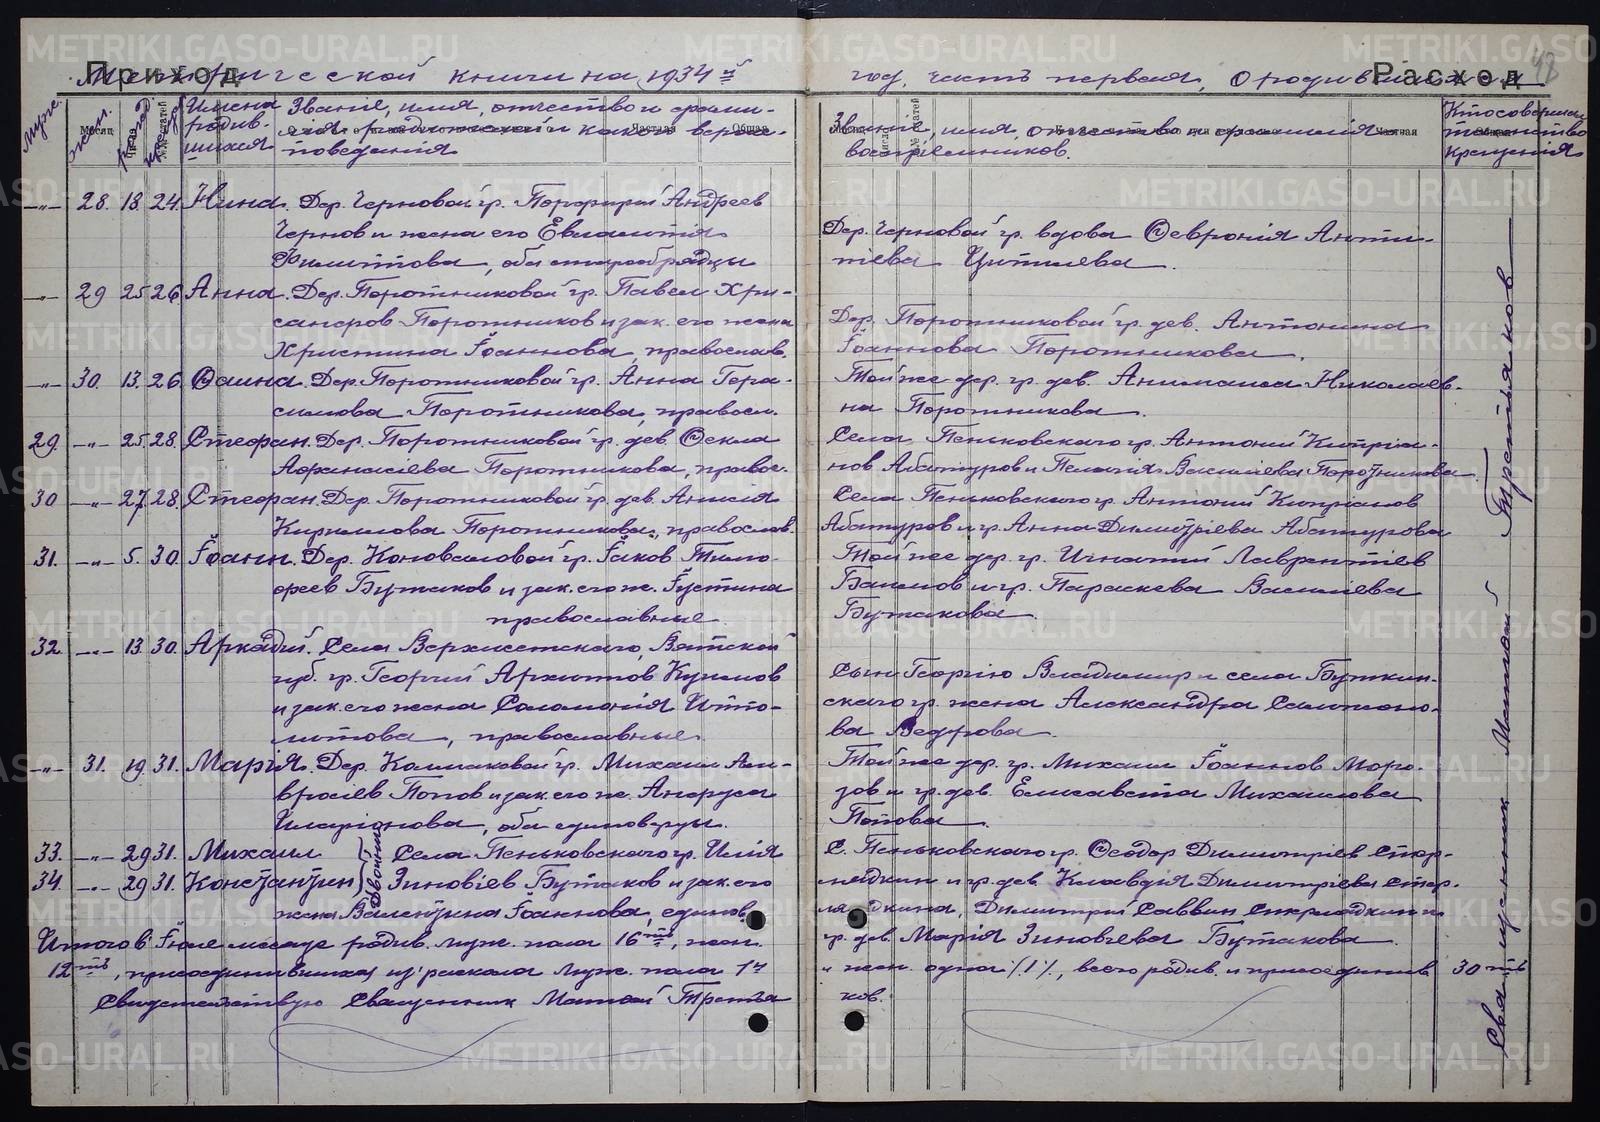 Приход
Метрической книги на 1934й
год, часть первая, о родившихся
Расход
48
муж.
жен.
рожд.
крещ.
Имена родив-
шихся
Званіе, имя, отчество и фами-
лія родителей и какого вероис-
поведанія
Званіе, имя, отчество и фамилія
воспріемников.
Кто совершил
таинство
крещенія
-"- 28. 18. 24. Нина. Дер. Черновой гр. Порфирий Андреев
Чернов и жена его Евлампія
Филиппова, оба старообрядцы
Дер. Черновой гр. вдова Февронія Анти-
пева Ципилева.
-"- 29 25 26 Анна. Дер. Поротниковой гр. Павел Хри-
санфов Поротников и зак. его жена
Христина Іоаннова, православ.
Дер. Поротниковой гр. дев. Антонина
Іоаннова Поротникова.
-"- 30. 13. 26. Фаина. Дер. Поротниковой гр. Анна Гера-
симова Поротникова, правосл.
Той же дер. гр. дев. Анимаиса Николаев-
на Поротникова.
29. -"- 25. 28. Стефан. Дер. Поротниковой гр. дев. Фекла
Афанасіева Поротникова, правос.
Села Пеньковскаго гр. Антоний Кипріа-
нов Абатуров и Пелагия Василіева Поротникова.
30 -"- 27. 28. Стефан. Дер. Поротниковой гр. дев. Анисія
Кириллова Поротникова, православ.
Села Пеньковскаго гр. Антоний Кипріанов
Абатуров и гр. Анна Димитріева Абатурова
31. -"- 5. 30. Іоанн. Дер. Коноваловой гр. Іаков Тимо-
феев Бутаков и зак. его ж. Іустина
православные.
Той же дер. гр. Игнатий Лаврентіев
Баилов и гр. Параскева Василіева
Бутакова.
32. -"- 13 30. Аркадий. Села Верхисетскаго, Вятской
губ. гр. Георгий Архиппов Куклов
и зак. его жена Саломонія Иппо-
литова, православные.
Сын Георгію Владимир и села Буткин-
скаго гр. жена Александра Сампсоно-
ва Ведрова.
-"- 31. 19. 31. Марія. Дер. Калмаковой гр. Михаил Ам-
вросіев Попов и зак. его ж. Анфуса
Иларіонова, оба единоверцы.
Той же дер. гр. Михаил Іоаннов Моро-
зов и гр. дев. Елисавета Михаилова
Попова.
33. -"- 29 31. Михаил
34. -"- 29 31. Константин
Двойни
Села Пеньковскаго гр. Илія
Зиновіев Бутаков и зак. его
жена Валентина Іоаннова, единов.
С. Пеньковскаго гр. Феодор Димитріев Стер-
лядкин и гр. дев. Клавдія Димитріева Стер-
лядкина, Димитрий Саввин Стерлядкин и
гр. дев. Марія Зиновіева Бутакова.
Итого в Іюле месяце родив. муж. пола 16ть, жен.
12ть, присоединившихся из раскола муж. пола 1н
и жен. одна /1/, всего родив. и присоединив 30ть
Свидетельствую Священник Матфей Третья
ков.
Священник Матфей Третьяков
METRIKI.GASO-URAL.RU